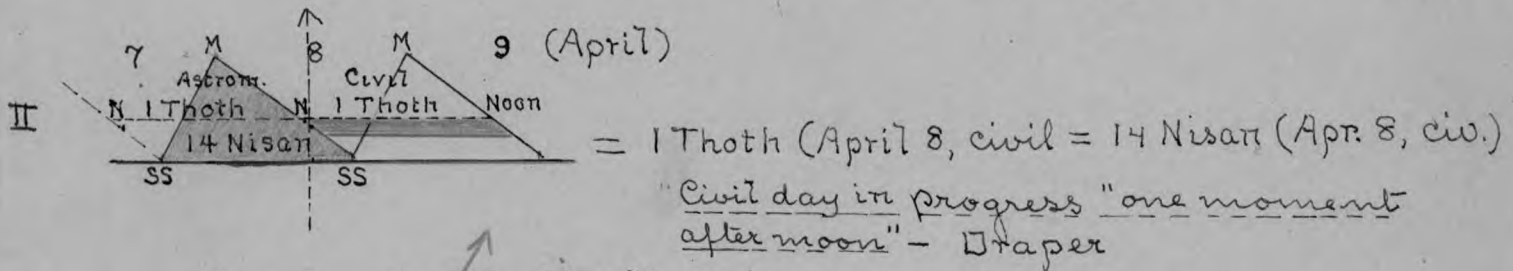 7 M 8 M 9 (April)
Astrom. Civil
II N 1 Thoth N 1 Thoth Noon
14 Nisan
= 1 Thoth (April 8, civil = 14 Nisan (Apr. 8, civ.)
SS SS
Civil day in progress "one moment
after moon" - Draper